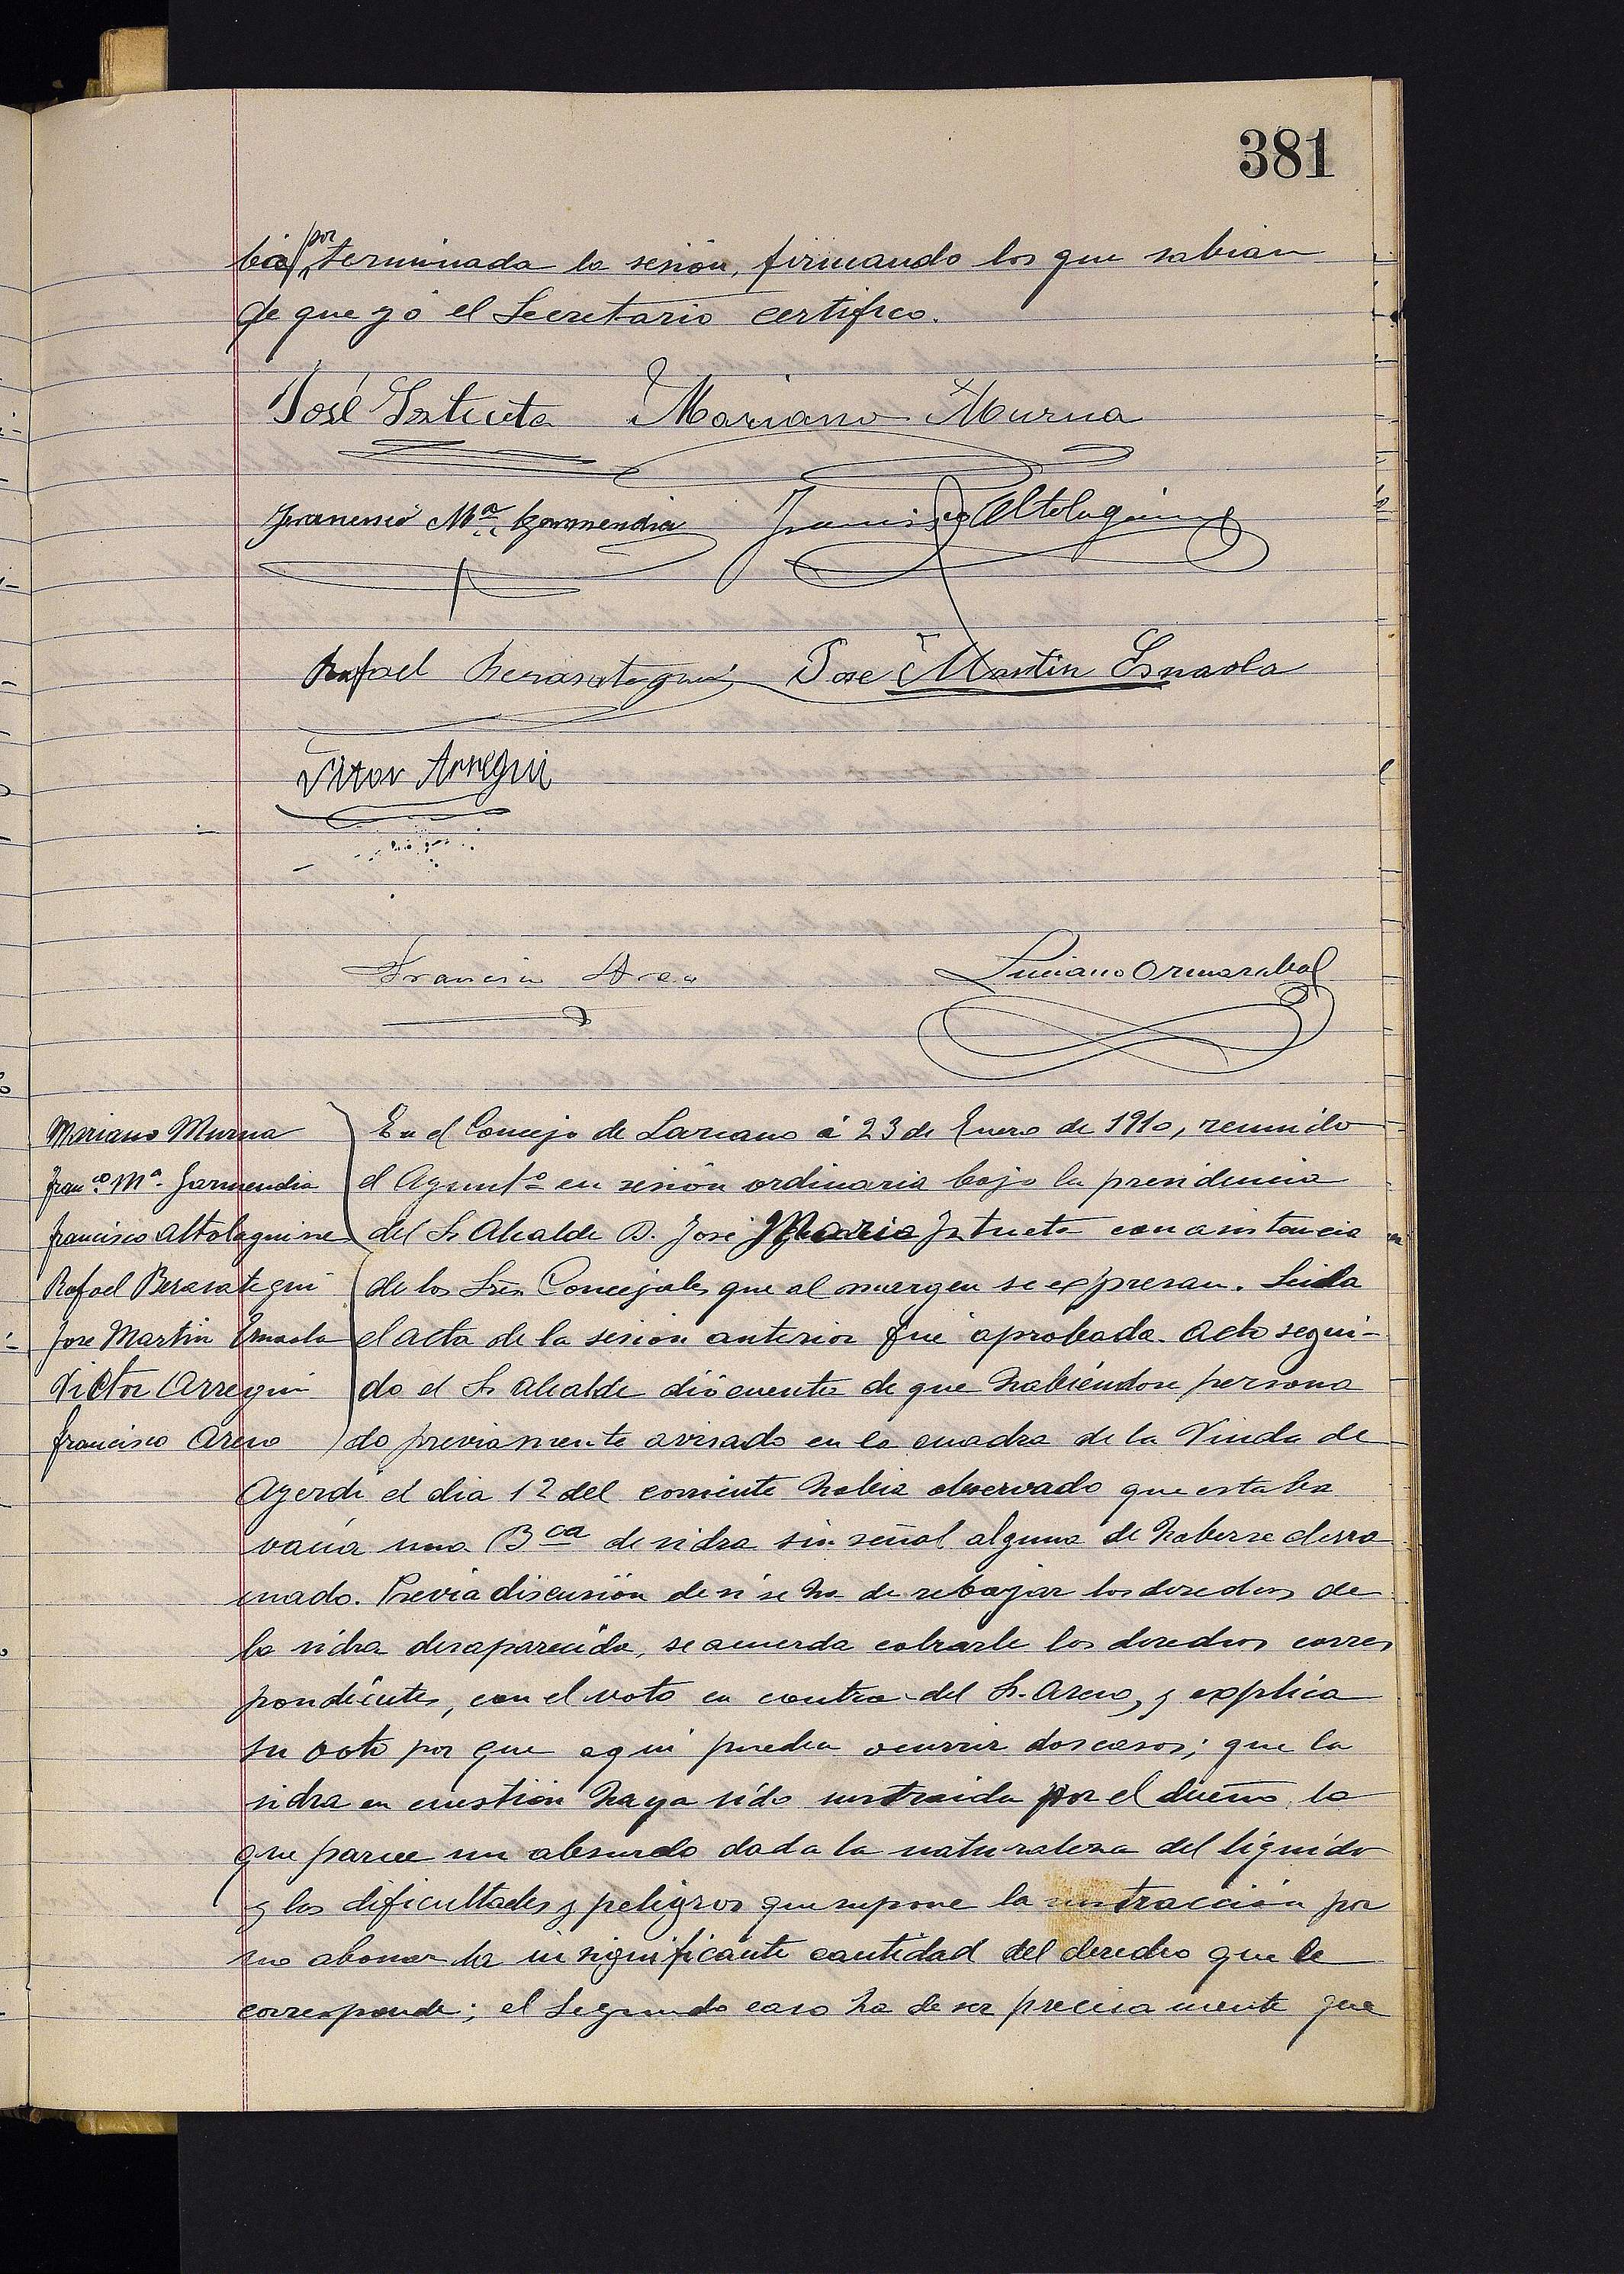 381
bia por terminada la sesión, firmando los que sabian
de que yó el Secretario certifico.
José Iztueta Mariano Murua
Francisco Mª Garmendia Francisco Altolaguirre
Rafael Berasategui Jose Martin Esnaola
Vitor Arregui
Francisco Areno
Luciano Ormazabal
Mariano Murua
Franco Mª Garmendia
Francisco Altolaguirre
Rafael Berasategui
Jose Martin Esnaola
Victor Arregui
Francisco Areno
En el Concejo de Lazcano á 23 de Enero de 1910, reunido
el Ayuntº en sesión ordinaria bajo la presidencia
del Sr Alcalde D. José Maria Iztueta con asistencia
de los Sres Concejales que al margen se expresan. Leida
el acta de la sesion anterior fué aprobada. Acto segui-
do el Sr Alcalde dió cuenta de que habiéndose persona
do previamente avisado en la cuadra de la Viuda de
Ayerdi el dia 12 del corriente habia observado que estaba
vacía una Bca de sidra sin señal alguna de haberse derra
mado. Previa discusión de si se ha de rebajar los derechos de
la sidra desaparecida, se acuerda cobrarle los derechos corres
pondientes, con el voto en contra del Sr. Areno, y explica
su voto por que aqui pueden ocurrir dos casos; que la
sidra en cuestión haya sido sustraida por el dueño, lo
que parece un absurdo dada la naturaleza del líquido
y las dificultades y peligros que supone la sustracción por
no abonar la insignificante cantidad del derecho que le
corresponde; el segundo caso ha de ser precisamente que